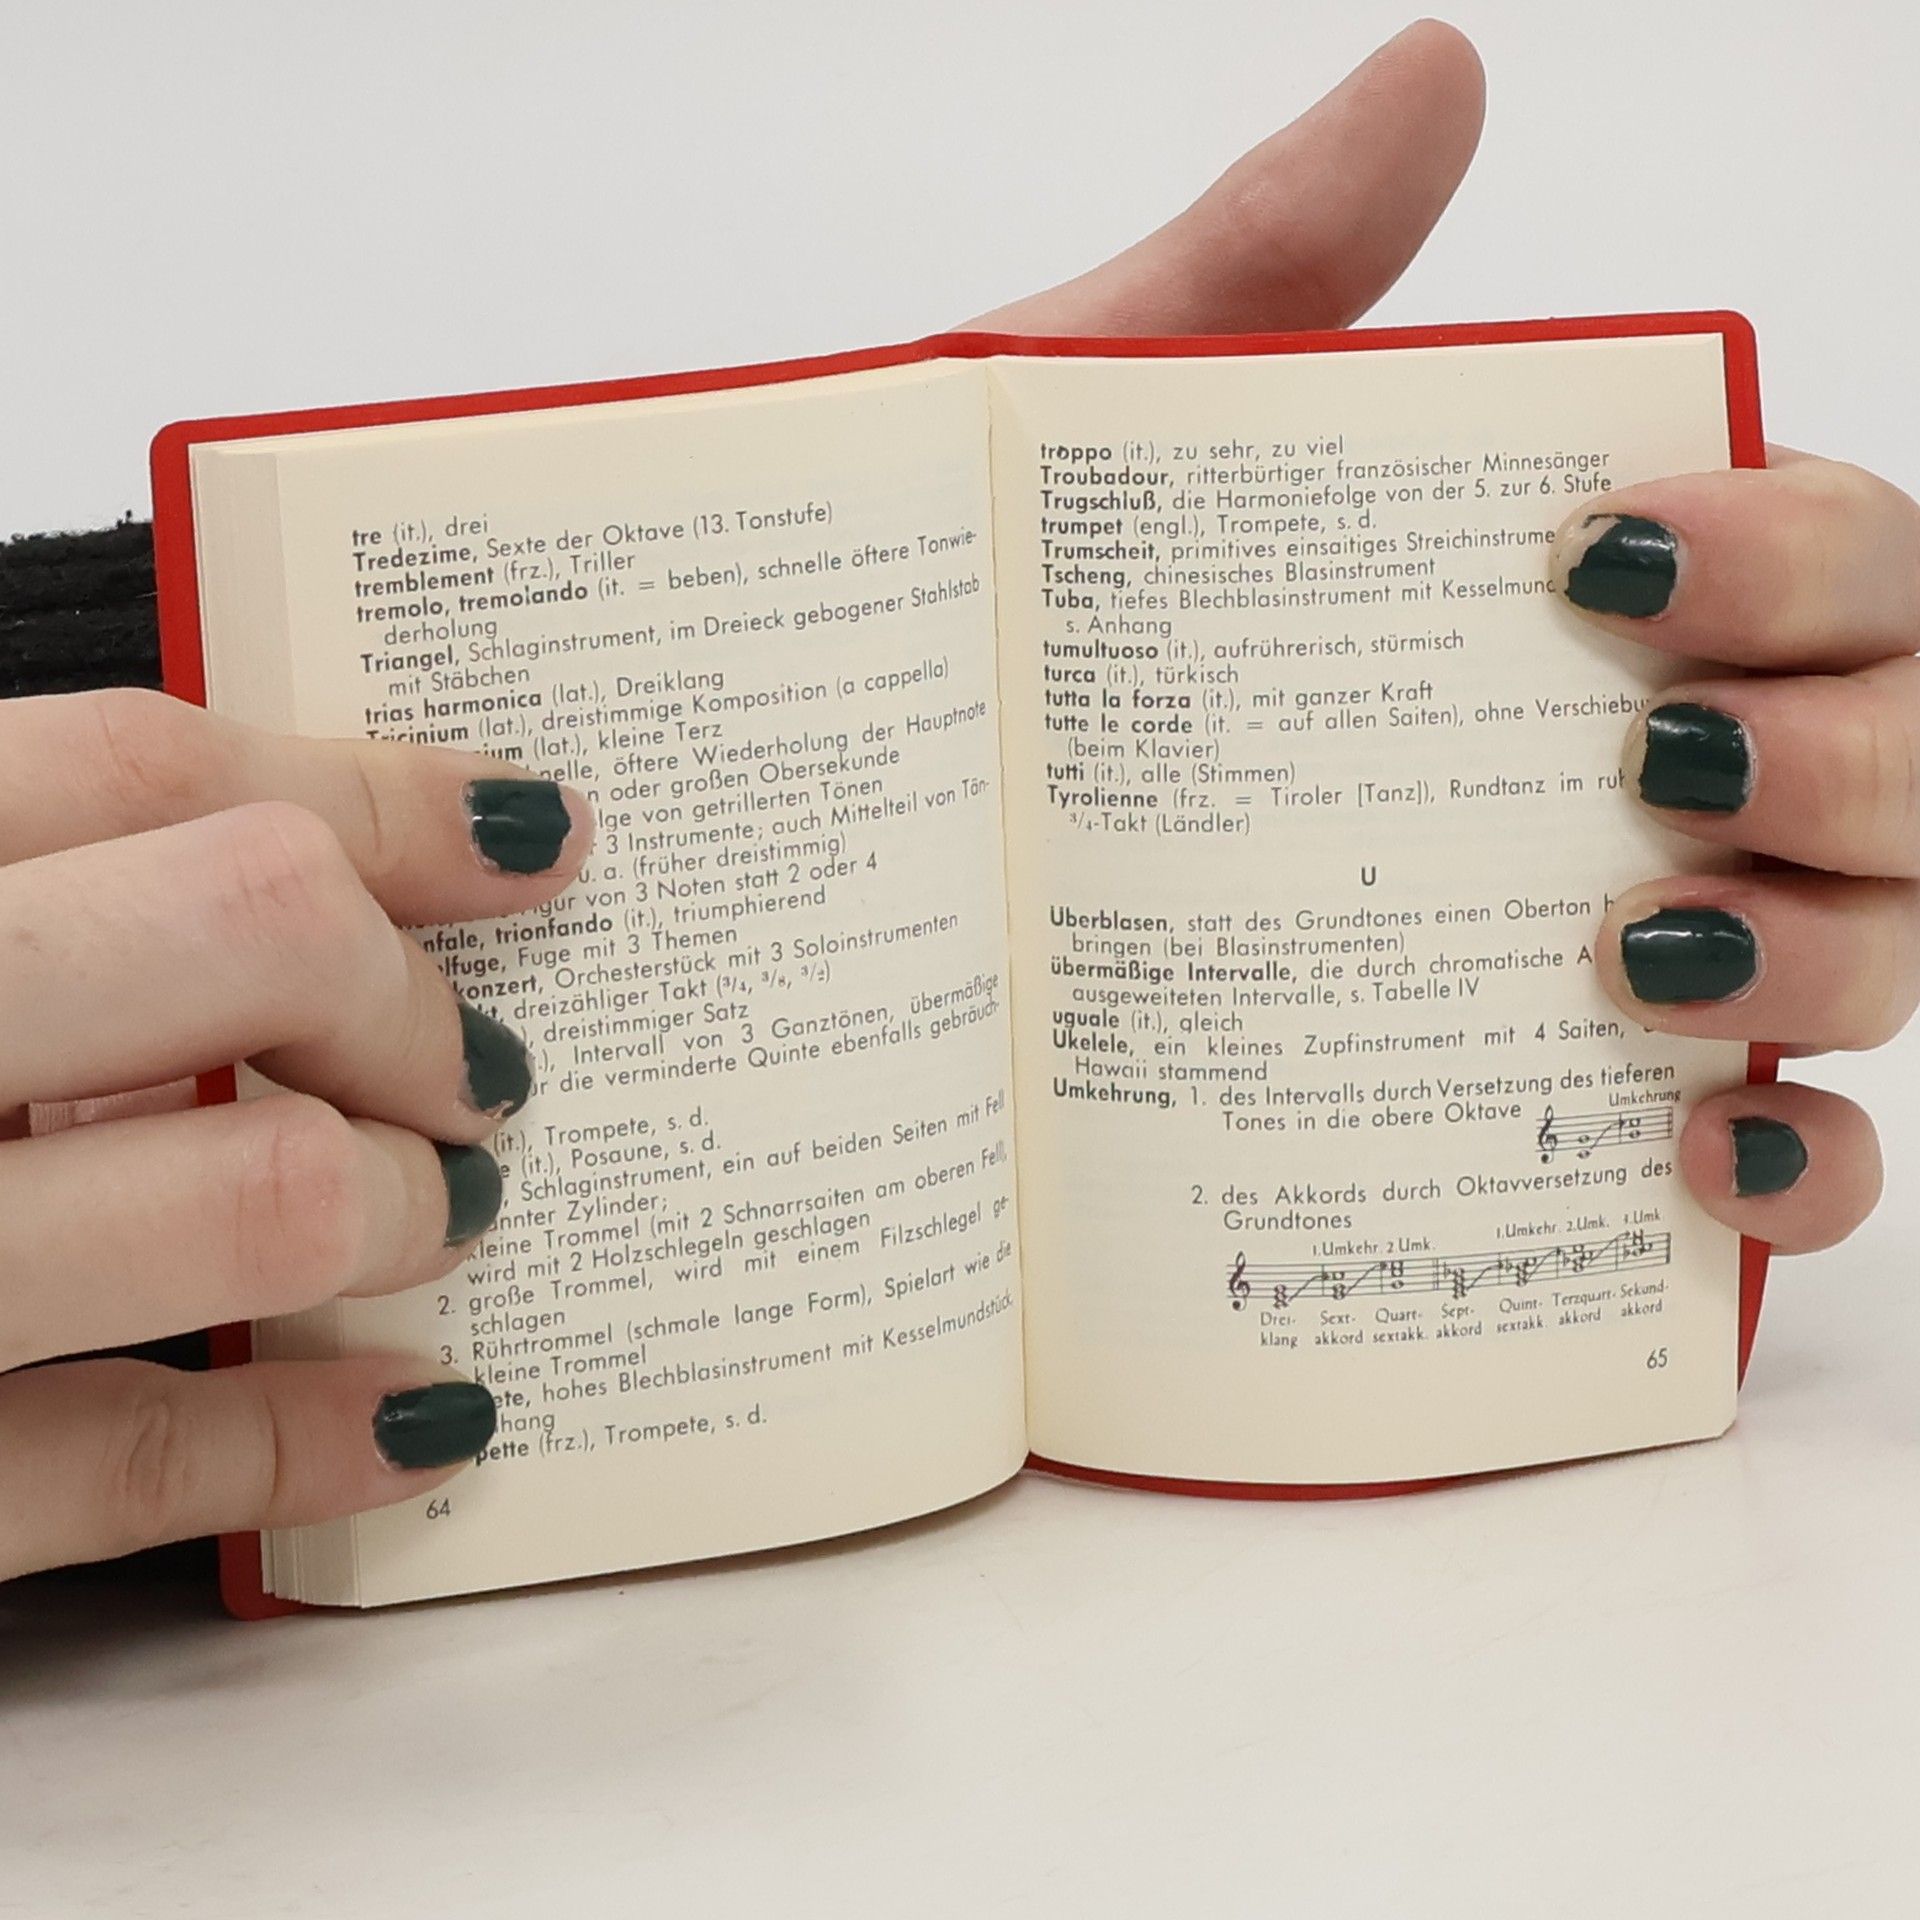 tre (it.), drei
Tredezime, Sexte der Oktave (13. Tonstufe)
tremblement (frz.), Triller
tremolo, tremolando (it. = beben), schnelle öftere Tonwie-
derholung
Triangel, Schlaginstrument, im Dreieck gebogener Stahlstab
mit Stäbchen
trias harmonica (lat.), Dreiklang
Tricinium (lat.), dreistimmige Komposition (a cappella)
(lat.), kleine Terz
öftere Wiederholung der Hauptnote
oder großen Obersekunde
von getrillerten Tönen
3 Instrumente; auch Mittelteil von Tän-
u. a. (früher dreistimmig)
von 3 Noten statt 2 oder 4
trionfando (it.), triumphierend
Fuge mit 3 Themen
Orchesterstück mit 3 Soloinstrumenten
dreizähliger Takt (3/4, 3/8, 3/2)
dreistimmiger Satz
Intervall von 3 Ganztönen, übermäßige
die verminderte Quinte ebenfalls gebräuch-
(it.), Trompete, s. d.
(it.), Posaune, s. d.
Schlaginstrument, ein auf beiden Seiten mit Fell
Zylinder;
kleine Trommel (mit 2 Schnarrsaiten am oberen Fell),
wird mit 2 Holzschlegeln geschlagen
2. große Trommel, wird mit einem Filzschlegel ge-
schlagen
3. Rührtrommel (schmale lange Form), Spielart wie die
kleine Trommel
hohes Blechblasinstrument mit Kesselmundstück,
(frz.), Trompete, s. d.
64
troppo (it.), zu sehr, zu viel
Troubadour, ritterbürtiger französischer Minnesänger
Trugschluß, die Harmoniefolge von der 5. zur 6. Stufe
trumpet (engl.), Trompete, s. d.
Trumscheit, primitives einsaitiges
Tscheng, chinesisches Blasinstrument
Tuba, tiefes Blechblasinstrument mit
s. Anhang
tumultuoso (it.), aufrührerisch, stürmisch
turca (it.), türkisch
tutta la forza (it.), mit ganzer Kraft
tutte le corde (it. = auf allen Saiten), ohne
(beim Klavier)
tutti (it.), alle (Stimmen)
Tyrolienne (frz. = Tiroler [Tanz]), Rundtanz im
3/4-Takt (Ländler)
U
Überblasen, statt des Grundtones einen Oberton
bringen (bei Blasinstrumenten)
übermäßige Intervalle, die durch chromatische
ausgeweiteten Intervalle, s. Tabelle IV
uguale (it.), gleich
Ukelele, ein kleines Zupfinstrument mit 4 Saiten,
Hawaii stammend
Umkehrung, 1. des Intervalls durch Versetzung des tieferen
Tones in die obere Oktave
Umkehrung
2. des Akkords durch Oktavversetzung des
Grundtones
1.Umkehr. 2.Umk. 1.Umkehr. 2.Umk. 3.Umk
Drei- Sext- Quart- Sept- Quint- Terzquart- Sekund-
klang akkord sextakk. akkord sextakk. akkord akkord
65